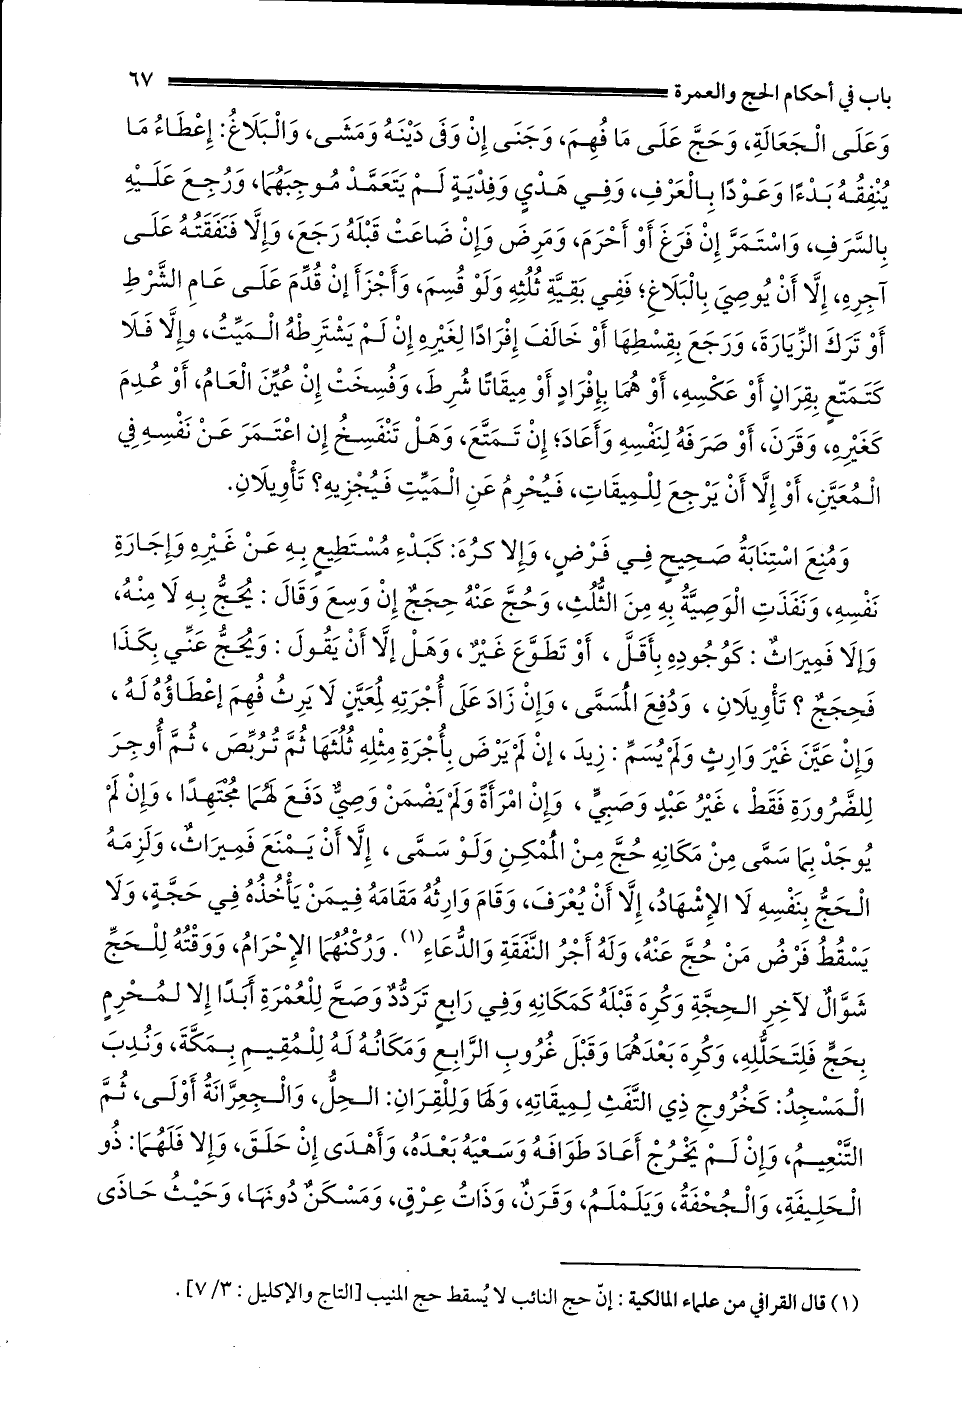 باب في أحكام الحج والعمرة ٦٧
وَعَلَى الْجَعَالَةِ، وَحَجَّ عَلَى مَا فُهِمَ، وَجَنَى إِنْ وَفَى دَيْنَهُ وَمَشَى، وَالْبَلَاغُ: إِعْطَاءُ مَا
يُنْفِقُهُ بَدْءًا وَعَوْدًا بِالْعَرْفِ، وَفِي هَدْيٍ وَفِدْيَةٍ لَمْ يَتَعَمَّدْ مُوجِبَهُمَا، وَرُجِعَ عَلَيْهِ
بِالسَّرَفِ، وَاسْتَمَرَّ إِنْ فَرَغَ أَوْ أَحْرَمَ، وَمَرِضَ وَإِنْ ضَاعَتْ قَبْلَهُ رَجَعَ، وَإِلَّا فَنَفَقَتُهُ عَلَى
آجِرِهِ، إِلَّا أَنْ يُوصِيَ بِالْبَلَاغِ؛ فَفِي بَقِيَّةِ ثُلُثِهِ وَلَوْ قُسِمَ، وَأَجْزَأَ إِنْ قُدِّمَ عَلَى عَامِ الشَّرْطِ
أَوْ تَرَكَ الزِّيَارَةَ، وَرَجَعَ بِقِسْطِهَا أَوْ خَالَفَ إِفْرَادًا لِغَيْرِهِ إِنْ لَمْ يَشْتَرِطْهُ الْمَيِّتُ، وإِلَّا فَلَا
كَتَمَتُّعٍ بِقِرَانٍ أَوْ عَكْسِهِ، أَوْ هُمَا بِإِفْرَادٍ أَوْ مِيقَاتًا شُرِطَ، وَفُسِخَتْ إِنْ عُيِّنَ الْعَامُ، أَوْ عُدِمَ
كَغَيْرِهِ، وَقَرَنَ، أَوْ صَرَفَهُ لِنَفْسِهِ وَأَعَادَ؛ إِنْ تَمَتَّعَ، وَهَلْ تَنْفَسِخُ إِن اعْتَمَرَ عَنْ نَفْسِهِ فِي
الْمُعَيَّنِ، أَوْ إِلَّا أَنْ يَرْجِعَ لِلْمِيقَاتِ، فَيُحْرِمُ عَنِ الْمَيِّتِ فَيُجْزِيهِ؟ تَأْوِيلَانِ.
وَمُنِعَ اسْتِنَابَةُ صَحِيحٍ فِي فَرْضٍ، وَإِلا كُرُهَ: كَبَدْءِ مُسْتَطِيعٍ بِهِ عَنْ غَيْرِهِ وَإِجَارَةِ
نَفْسِهِ، وَنَفَذَتِ الْوَصِيَّةُ بِهِ مِنَ الثُّلُثِ، وَحُجَّ عَنْهُ حِجَجٌ إِنْ وَسِعَ وَقَالَ : يُحَجُّ بِهِ لَا مِنْهُ،
وَإِلا فَمِيرَاثٌ : كَوُجُودِهِ بِأَقَلَّ ، أَوْ تَطَوَّعَ غَيْرٌ ، وَهَلْ إِلَّا أَنْ يَقُولَ : وَيُحَجُّ عَنِّي بِكَذَا
فَحِجَجٌ ؟ تَأْوِيلَانِ ، وَدُفِعَ الْمُسَمَّى ، وَإِنْ زَادَ عَلَى أُجْرَتِهِ لِمُعَيَّنٍ لَا يَرِثُ فُهِمَ إِعْطَاؤُهُ لَهُ ،
وَإِنْ عَيَّنَ غَيْرَ وَارِثٍ وَلَمْ يُسَمِّ : زِيدَ ، إِنْ لَمْ يَرْضَ بِأُجْرَةِ مِثْلِهِ ثُلُثَهَا ثُمَّ تُرُبِّصَ ، ثُمَّ أُوجِرَ
لِلضَّرُورَةِ فَقَطْ ، غَيْرُ عَبْدٍ وَصَبِيٍّ ، وَإِنْ امْرَأَةً وَلَمْ يَضْمَنْ وَصِيٌّ دَفَعَ لَهُمَا مُجْتَهِدًا ، وَإِنْ لَمْ
يُوجَدْ بِمَا سَمَّى مِنْ مَكَانِهِ حُجَّ مِنْ الْمُمْكِنِ وَلَوْ سَمَّى ، إِلَّا أَنْ يَمْنَعَ فَمِيرَاثٌ، وَلَزِمَهُ
الْحَجُّ بِنَفْسِهِ لَا الإِشْهَادُ، إِلَّا أَنْ يُعْرَفَ، وَقَامَ وَارِثُهُ مَقَامَهُ فِيمَنْ يَأْخُذُهُ فِي حَجَّةٍ، وَلَا
يَسْقُطُ فَرْضُ مَنْ حُجَّ عَنْهُ، وَلَهُ أَجْرُ النَّفَقَةِ وَالدُّعَاءِ(١). وَرُكْنُهُمَا الإِحْرَامُ، وَوَقْتُهُ لِلْحَجِّ
شَوَّالٌ لآخِرِ الحِجَّةِ وَكُرِهَ قَبْلَهُ كَمَكَانِهِ وَفِي رَابِغٍ تَرَدُّدٌ وَصَحَّ لِلْعُمْرَةِ أَبَدًا إِلا لمُحْرِمٍ
بِحَجٍّ فَلِتَحَلُّلِهِ، وَكُرِهَ بَعْدَهُمَا وَقَبْلَ غُرُوبِ الرَّابِعِ وَمَكَانُهُ لَهُ لِلْمُقِيمِ بِمَكَّةَ، وَنُدِبَ
الْمَسْجِدُ: كَخُرُوجِ ذِي التَّفَثِ لِمِيقَاتِهِ، وَلَهَا وَلِلْقِرَانِ: الحِلُّ، وَالْجِعِرَّانَةُ أَوْلَى، ثُمَّ
التَّنْعِيمُ، وَإِنْ لَمْ يَخْرُجْ أَعَادَ طَوَافَهُ وَسَعْيَهُ بَعْدَهُ، وَأَهْدَى إِنْ حَلَقَ، وَإِلا فَلَهُمَا: ذُو
الْحَلِيفَةِ، وَالْجُحْفَةُ، وَيَلَمْلَمُ، وَقَرَنٌ، وَذَاتُ عِرْقٍ، وَمَسْكَنٌ دُونَهَا، وَحَيْثُ حَاذَى
(١) قال القرافي من علماء المالكية : إنّ حج النائب لا يُسقط حج المنيب [التاج والإكليل : ٣/ ٧].